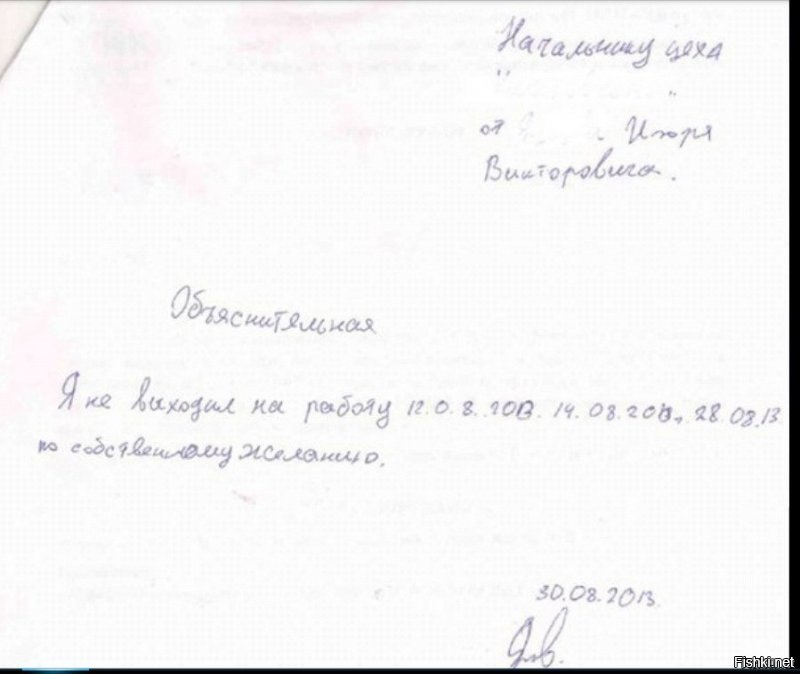 Начальнику цеха
"
"
от Я а Игоря
Викторовича.
Объяснительная
Я не выходил на работу 12.0.8.2013. 14.08.2013, 28.08.13
по собственному желанию.
30.08.2013
Яв.
Fishki.net